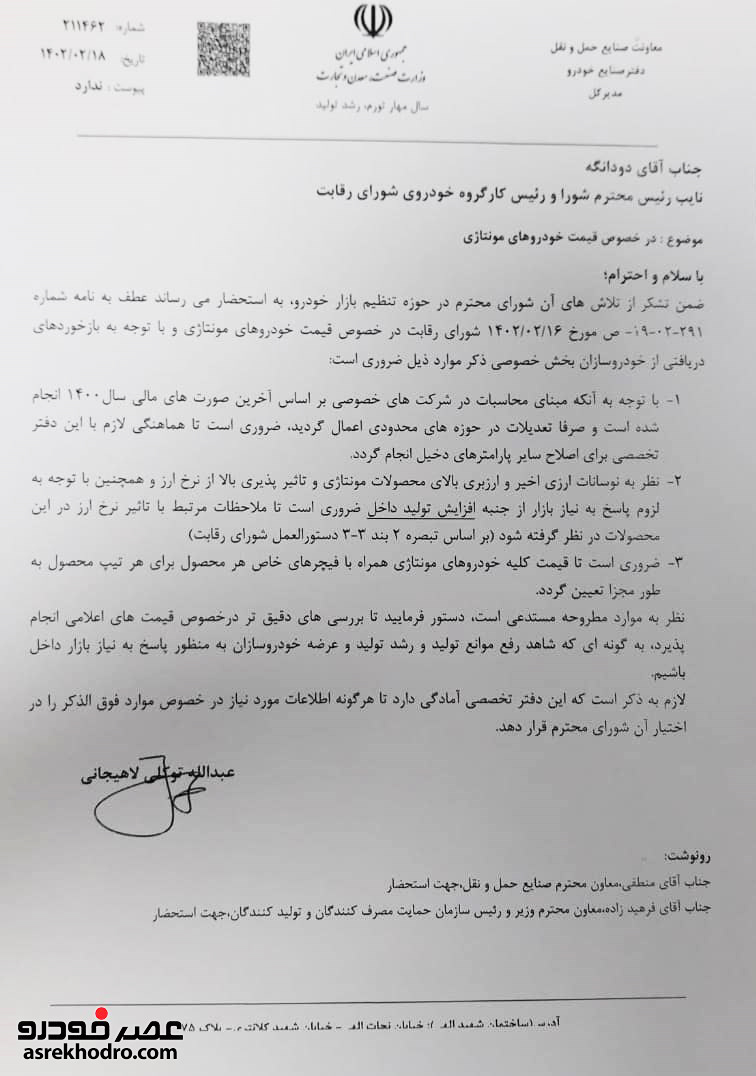 معاونت صنایع حمل و نقل
دفتر صنایع خودرو
مدیرکل
جمهوری اسلامی ایران
وزارت صنعت، معدن و تجارت
سال مهار تورم، رشد تولید
شماره: ۲۱۱۴۶۲
تاریخ: ۱۴۰۲/۰۲/۱۸
پیوست: ندارد
جناب آقای دودانگه
نایب رئیس محترم شورا و رئیس کارگروه خودروی شورای رقابت
موضوع: در خصوص قیمت خودروهای مونتاژی
با سلام و احترام؛
ضمن تشکر از تلاش های آن شورای محترم در حوزه تنظیم بازار خودرو، به استحضار می رساند عطف به نامه شماره
۱۹-۰۲-۲۹۱- ص مورخ ۱۴۰۲/۰۲/۱۶ شورای رقابت در خصوص قیمت خودروهای مونتاژی و با توجه به بازخوردهای
دریافتی از خودروسازان بخش خصوصی ذکر موارد ذیل ضروری است:
۱- با توجه به آنکه مبنای محاسبات در شرکت های خصوصی بر اساس آخرین صورت های مالی سال ۱۴۰۰ انجام
شده است و صرفا تعدیلات در حوزه های محدودی اعمال گردید، ضروری است تا هماهنگی لازم با این دفتر
تخصصی برای اصلاح سایر پارامترهای دخیل انجام گردد.
۲- نظر به نوسانات ارزی اخیر و ارزبری بالای محصولات مونتاژی و تاثیر پذیری بالا از نرخ ارز و همچنین با توجه به
لزوم پاسخ به نیاز بازار از جنبه افزایش تولید داخل ضروری است تا ملاحظات مرتبط با تاثیر نرخ ارز در این
محصولات در نظر گرفته شود (بر اساس تبصره ۲ بند ۳-۳ دستورالعمل شورای رقابت)
۳- ضروری است تا قیمت کلیه خودروهای مونتاژی همراه با فیچرهای خاص هر محصول برای هر تیپ محصول به
طور مجزا تعیین گردد.
نظر به موارد مطروحه مستدعی است، دستور فرمایید تا بررسی های دقیق تر درخصوص قیمت های اعلامی انجام
پذیرد، به گونه ای که شاهد رفع موانع تولید و رشد تولید و عرضه خودروسازان به منظور پاسخ به نیاز بازار داخل
باشیم.
لازم به ذکر است که این دفتر تخصصی آمادگی دارد تا هرگونه اطلاعات مورد نیاز در خصوص موارد فوق الذکر را در
اختیار آن شورای محترم قرار دهد.
عبدالله توکلی لاهیجانی
رونوشت:
جناب آقای منطقی،معاون محترم صنایع حمل و نقل،جهت استحضار
جناب آقای فرهید زاده،معاون محترم وزیر و رئیس سازمان حمایت مصرف کنندگان و تولید کنندگان،جهت استحضار
خیابان نجات الهی - خیابان شهید کلانتری - پلاک
عصر خودرو
asrekhodro.com